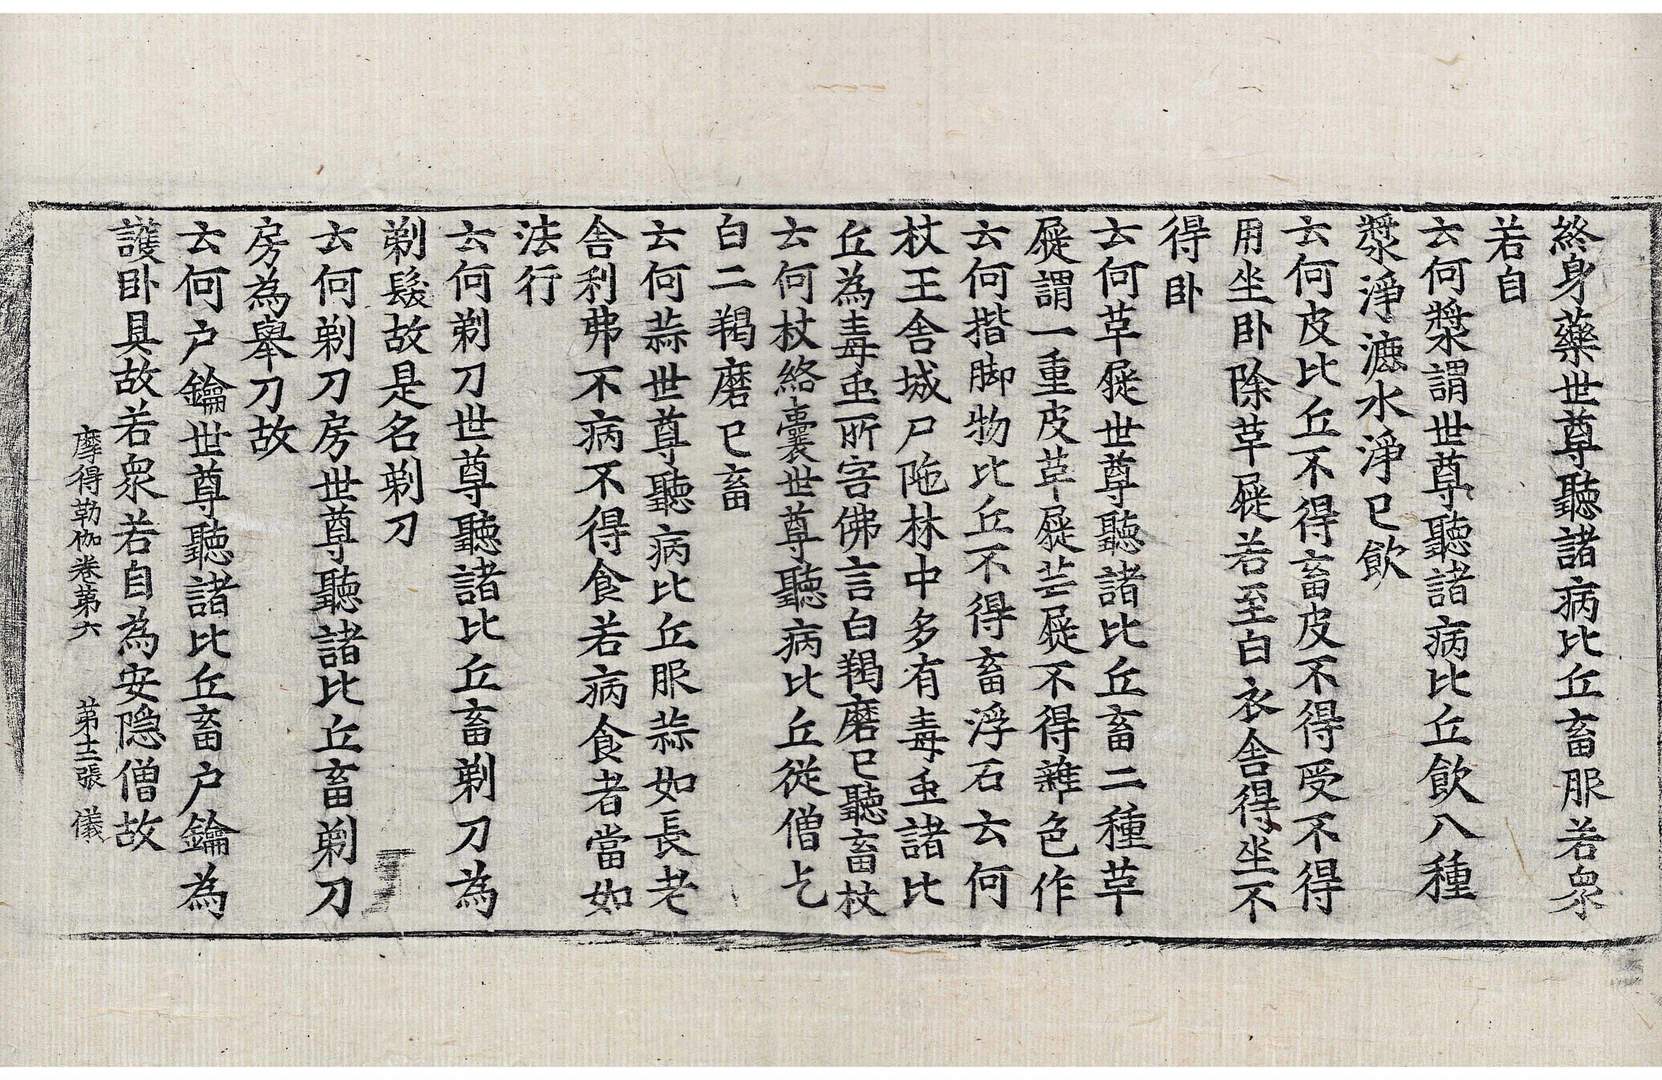 終身藥世尊聽諸病比丘畜服若衆
若自
云何漿謂世尊聽諸病比丘飲八種
漿淨漉水淨已飲
云何皮比丘不得畜皮不得受不得
用坐卧除革屣若至白衣舍得坐不
得卧
云何革屣世尊聽諸比丘畜二種革
屣謂一重皮革屣芒屣不得雜色作
云何揩脚物比丘不得畜浮石云何
杖王舍城尸陁林中多有毒虫諸比
丘為毒虫所害佛言白羯磨已聽畜杖
云何杖絡囊世尊聽病比丘從僧乞
白二羯磨已畜
云何蒜世尊聽病比丘服蒜如長老
舍利弗不病不得食若病食者當如
法行
云何剃刀世尊聽諸比丘畜剃刀為
剃髮故是名剃刀
云何剃刀房世尊聽諸比丘畜剃刀
房為舉刀故
云何户鑰世尊聽諸比丘畜户鑰為
護卧具故若衆若自為安隠僧故
摩得勒伽卷第六 第十二張 儀